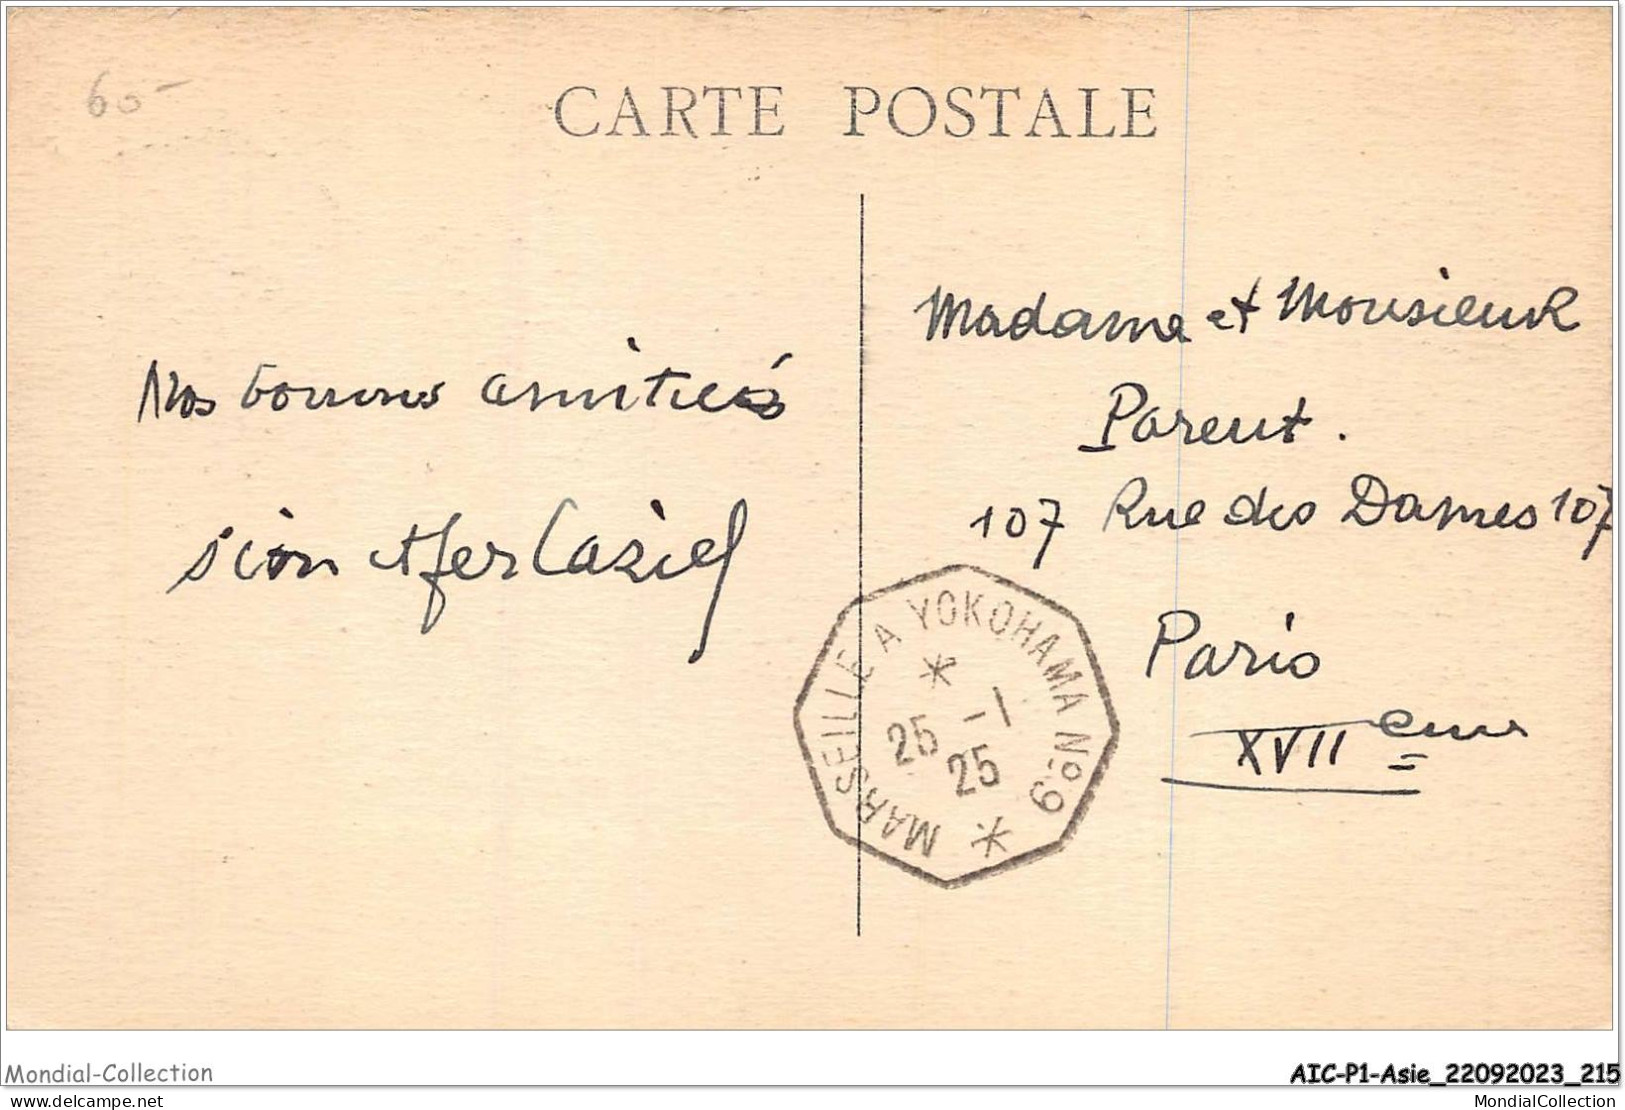 60-
CARTE POSTALE
Nos bonnes amitiés
Madame et Monsieur
Parent.
107 Rue des Dames 107
Paris
XVII eme
MARSEILLE A YOKOHAMA No 9
25 -1
25
Mondial-Collection
AIC-P1-Asie_22092023_215
delcampe.net
MondialCollection